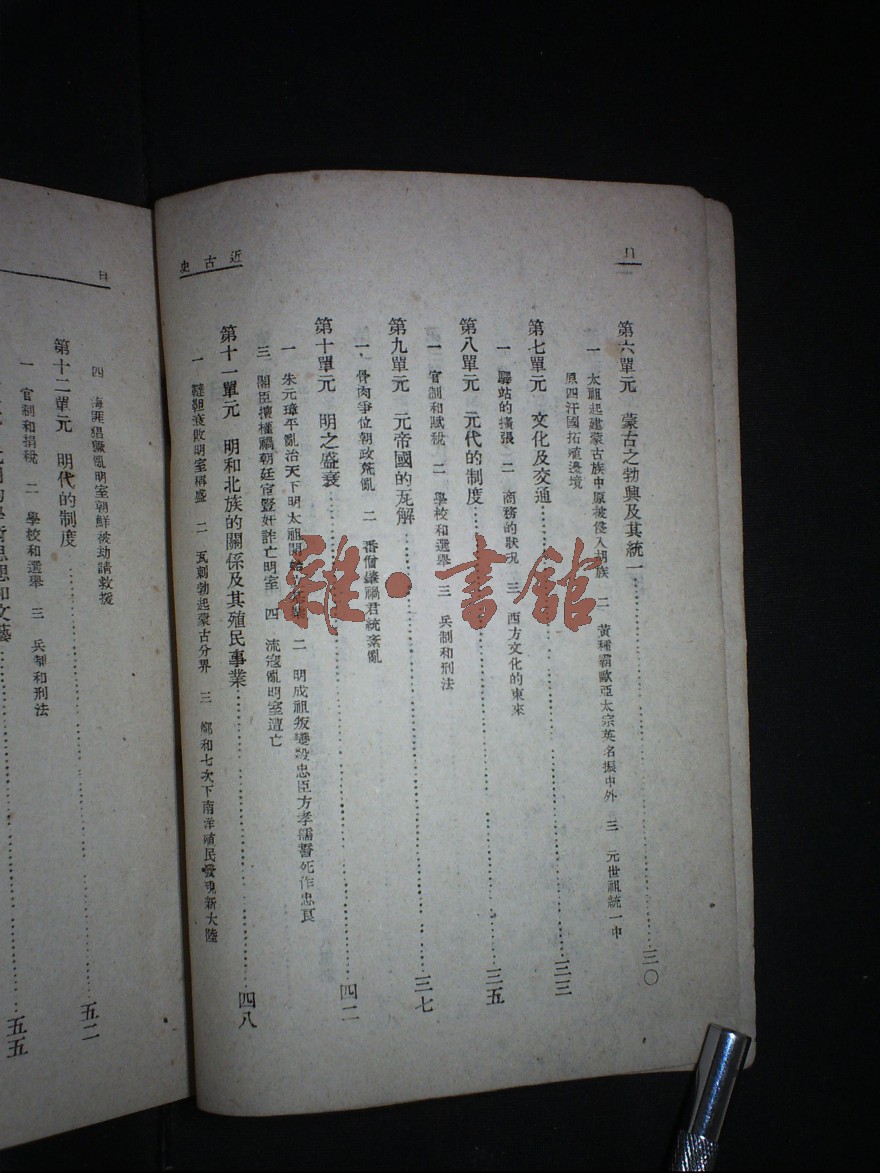 近古史
第六單元　蒙古之勃興及其統一……三〇
一　太祖起建蒙古族中原被侵入胡族　二　黃種霸歐亞太宗英名振中外　三　元世祖統一中
原四汗國拓殖邊境
第七單元　文化及交通……三三
一　驛站的擴張　二　商務的狀況　三　西方文化的東來
第八單元　元代的制度……三五
一　官制和賦稅　二　學校和選舉　三　兵制和刑法
第九單元　元帝國的瓦解……三七
一　骨肉爭位朝政荒亂　二　番僧鑄禍君統紊亂
第十單元　明之盛衰……四二
一　朱元璋平亂治天下明太祖開始　二　明成祖叛變殺忠臣方孝孺誓死作忠良
三　閣臣攬權禍朝廷宦豎奸詐亡明室　四　流寇亂明室遭亡
第十一單元　明和北族的關係及其殖民事業……四八
一　韃靼衰敗明室稱盛　二　瓦剌勃起蒙古分界　三　鄭和七次下南洋殖民發現新大陸
目
四　海涯猖獗亂明室朝鮮被劫請救援
第十二單元　明代的制度……五二
一　官制和捐稅　二　學校和選舉　三　兵制和刑法
學術思想和文藝……五五
雜·書館